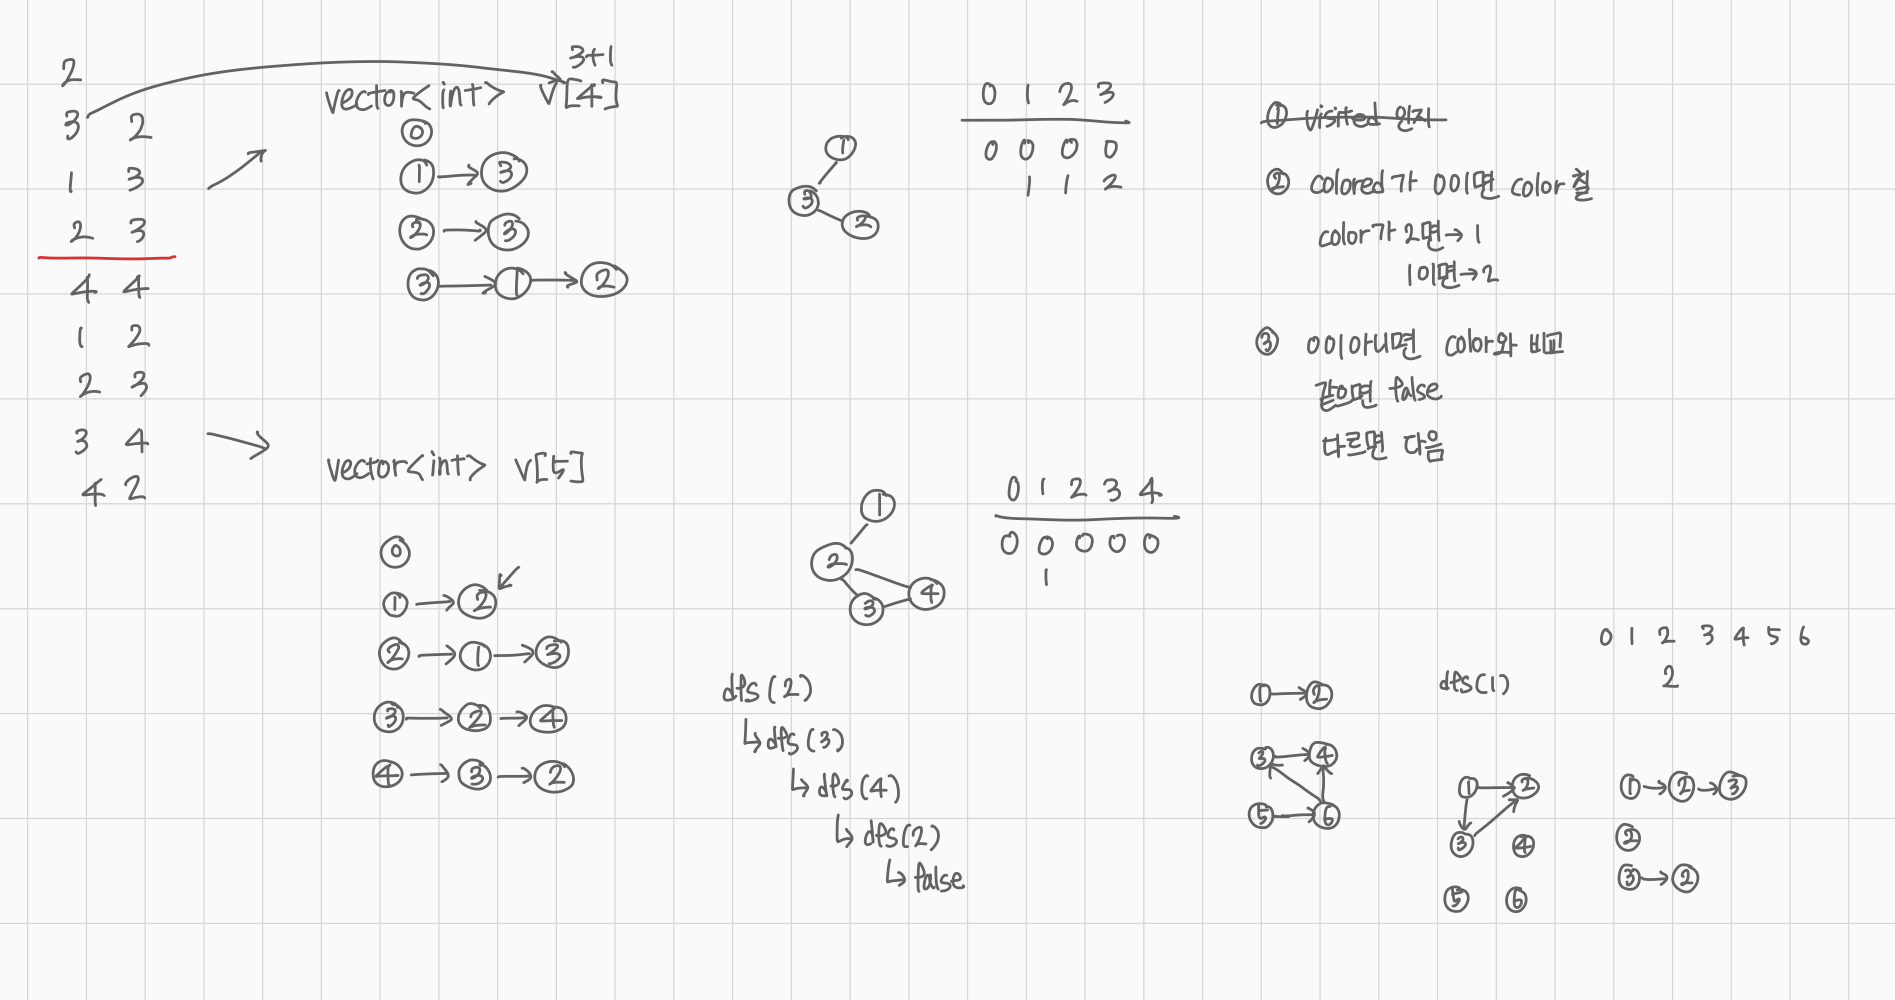 2
3 2
1 3
2 3
4 4
1 2
2 3
3 4
4 2
3+1
vector<int> v[4]
0
1 → 3
2 → 3
3 → 1 → 2
1
3
2
0 1 2 3
0 0 0 0
1 1 2
① visited 인지
② colored가 0이면 color 칠
color가 2면→ 1
1이면→2
③ 0이아니면 color와 비교
같으면 false
다르면 다음
vector<int> v[5]
0
1 → 2
2 → 1 → 3
3 → 2 → 4
4 → 3 → 2
1
2
4
3
0 1 2 3 4
0 0 0 0 0
1
dfs(2)
↳dfs(3)
↳dfs(4)
↳dfs(2)
↳false
1 → 2
3 → 4
5 → 6
dfs(1)
0 1 2 3 4 5 6
2
1 2
3 4
5 6
1 → 2 → 3
2
3 → 2